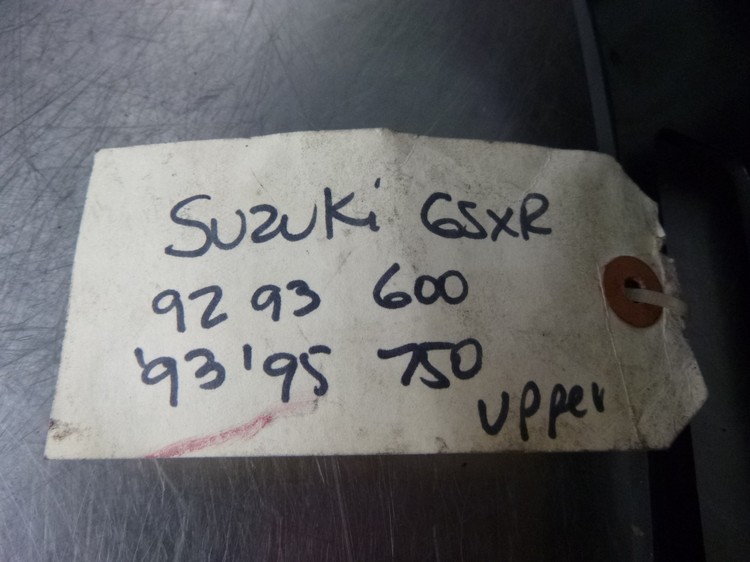 SUZUKi GSXR
92 93 600
'93 '95 750
upper